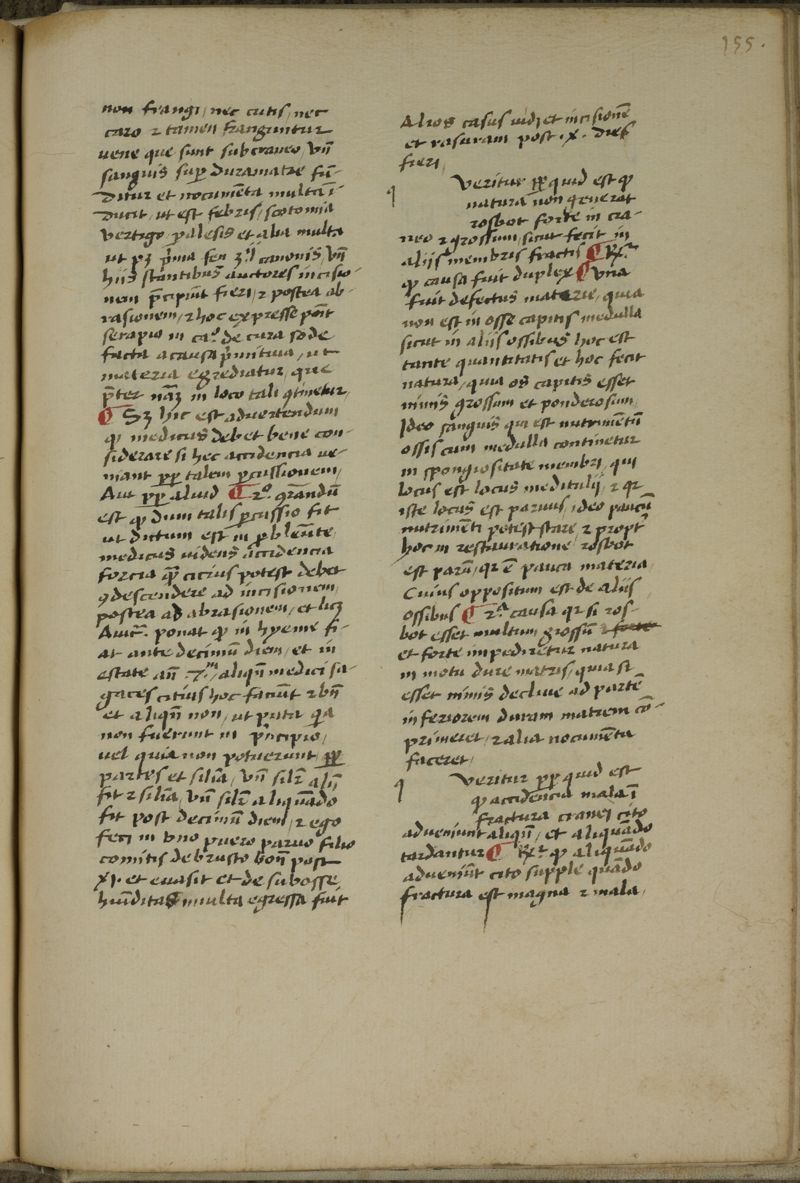 155.
non frangi, nec cutis, nec
caro ⁊ tamen franguntur
vene que sunt sub craneo, vn̄
sanguis sup̱ duramatre fū-
ditur et nocumēta multa ī-
ducit, ut est febris, scotomia
vertigo palesis et alia multa
ut pꝫ p̄ma fen 3ⁱⁱ canonis, vn̄
hiis stantibus auctores incisio-
nem p̄cipiūt fieri, ⁊ postea ab-
rasionem, ⁊ hoc expresse poīt
serapio in caº. de cura sode
facta a causa p̄mitiua, ut
materia egrediatur, que
p̄ter nāꝫ in loco tali ꝯtinetur,
¶ Sꝫ hic est advertendum
ꝙ medicus debet bene con-
siderare si hec accidencia ve-
niant ꝓꝑ talem ꝑcussionem,
Aut ꝓꝑ aliud ¶ 2º. ꝯsiderandū
est ꝙ dum talis ꝑcussio fit
ut dictum est in ꝓbleūte
medicus videns accidencia
forcia qͣ̄ cicius potest debet
ꝯdescendere ad incisionem,
postea ad abrasionem, et licꝫ
Auic̄. ponat ꝙ in hyeme fi-
at ante decimū diem, et in
estate an̄ 7ᵐ, aliqn̄ medici sa-
gaces citius hoc faciūt ⁊ bn̄
et aliqn̄ non, ut puta qͥa
non fuerunt in p̄ncipio,
vel quia non potuerunt, ꝓꝑ
partes et silīa, vn̄ silr̄ aliī
fit ⁊ silīa, vn̄ silr̄ aliquādo
fit post decimū diem, ⁊ ego
feci in vno puero paruo filio
comitis de brusto bon̄ post
xj. et euasit et de sub osse,
hūiditas multa egressa fuit
Alios casus vidj et incisionē
et rasuram post .x. dies
fieri,
Veritur ꝓꝑ quid est ꝙ
natura non generat
rosbot forte in cra-
neo ⁊ grossum, sicut fecit in
aliis membris fractis ¶ Rx̄.
ꝙ causa fuit duplex ¶ Vna
fuit defectus materie, quia
non est in osse capitis medulla
sicut in aliis ossibus hoc est
tante quantitatis et hoc fecit
natura, quia os capitis esset
nimis grossum et ponderosum,
Ideo sanguis qui est nutrimētū
ossis cum medulla continetur
in spongiositate membri, qui
locus est locus meditulij, ⁊ qr
iste locus est paruus, ideo paucū
nutrimēti potest stare, ⁊ propt̓
hoc in restauratione rosbot
est parū, qr ē pauca materia
Cuius oppositum est de aliis
ossibus ¶ 2ª. causa qr si ros-
bot esset multum grossū
et forte impediretur natura
in motu dure matris, quia si
esset nimis decliue ad partē
inferiorem duram matrem cō-
primeret, ⁊ alia nocumēta
faceret,
Veritur ꝓꝑ quid est
ꝙ accidencia mala ī
fractura cranei cito
adveniunt aliqn̄, et aliquādo
tardantur ¶ Rx̄. ꝙ aliquādo
adveniūt cito supple quādo
fractura est magna ⁊ mala,